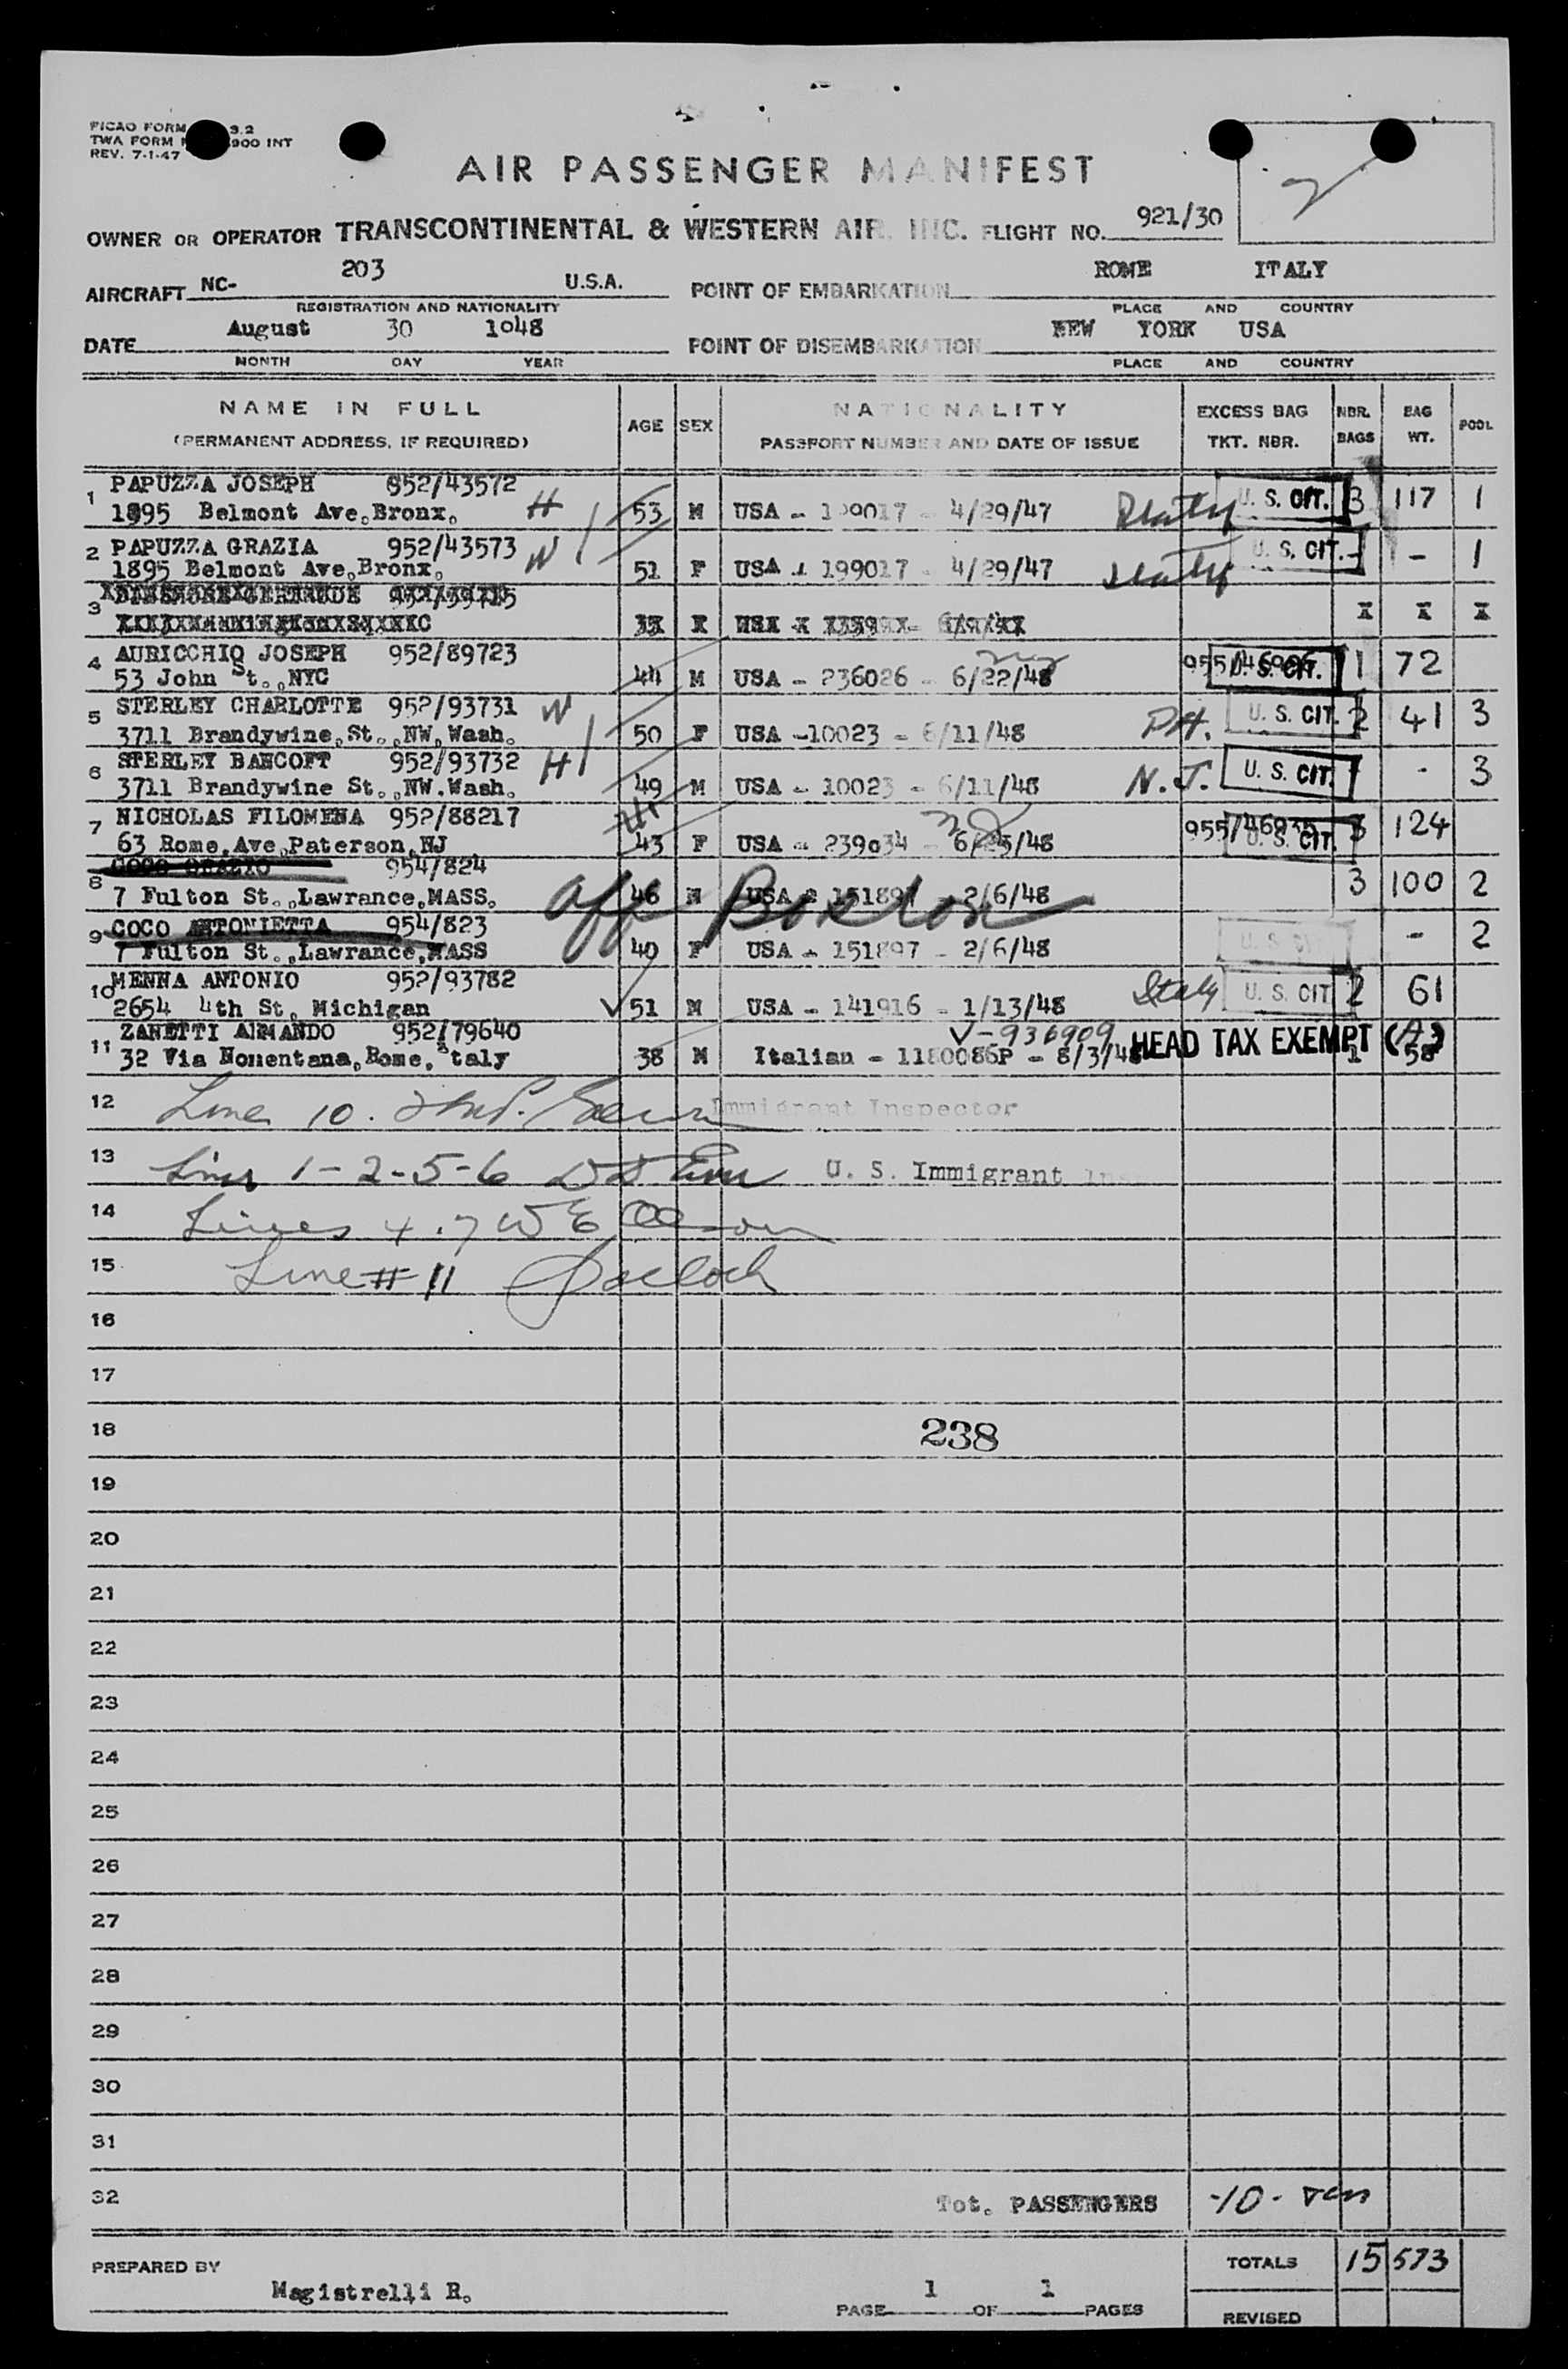 PICAO FORM 3.2
TWA FORM 900 INT
REV. 7-1-47
AIR PASSENGER MANIFEST
OWNER OR OPERATOR TRANSCONTINENTAL & WESTERN AIR, INC. FLIGHT NO. 921/30
AIRCRAFT NC- 203 U.S.A. POINT OF EMBARKATION ROME ITALY
REGISTRATION AND NATIONALITY PLACE AND COUNTRY
DATE August 30 1o48 POINT OF DISEMBARKATION NEW YORK USA
MONTH DAY YEAR PLACE AND COUNTRY
NAME IN FULL AGE SEX NATIONALITY EXCESS BAG NBR. BAG POOL
(PERMANENT ADDRESS, IF REQUIRED) PASSPORT NUMBER AND DATE OF ISSUE TKT. NBR. BAGS WT.
1 PAPUZZA JOSEPH 952/43572
1895 Belmont Ave.Bronx. H 53 M USA - 199017 - 4/29/47 Italy U. S. CIT. 3 117 1
2 PAPUZZA GRAZIA 952/43573 W U. S. CIT. - - 1
1895 Belmont Ave.Bronx. 51 F USA - 199017 - 4/29/47 Italy
3 X X X
4 AURICCHIO JOSEPH 952/89723 NY
53 John St..NYC 44 M USA - 236026 - 6/22/48 U. S. CIT. 1 72
5 STERLEY CHARLOTTE 952/93731 W
3711 Brandywine.St..NW.Wash. 50 F USA -10023 - 6/11/48 PA. U. S. CIT. 2 41 3
6 STERLEY BANCOFT 952/93732 H
3711 Brandywine St..NW.Wash. 49 M USA - 10023 - 6/11/48 N.J. U. S. CIT. - - 3
7 NICHOLAS FILOMENA 952/88217 NJ
63 Rome.Ave.Paterson.NJ 43 F USA - 239034 - 6/25/48 U. S. CIT. 3 124
8 COCO ORAZIO 954/824
7 Fulton St..Lawrance.MASS. off Boston 46 M USA - 151897 2/6/48 3 100 2
9 COCO ANTONIETTA 954/823
7 Fulton St..Lawrance.MASS 40 F USA - 151897 - 2/6/48 U. S. CIT. - 2
10 MENNA ANTONIO 952/93782
2654 4th St. Michigan 51 M USA - 141916 - 1/13/48 Italy U. S. CIT. 2 61
11 ZANETTI ARMANDO 952/79640 V-936909 HEAD TAX EXEMPT (A3)
32 Via Nomentana.Rome. Italy 38 M Italian - 1180086P - 8/3/48 1 58
12 Line 10. Immigrant Inspector
13 Lines 1-2-5-6 U. S. Immigrant Ins
14 Lines 4.7 W E Olson
15 Line # 11
16
17
18 238
19
20
21
22
23
24
25
26
27
28
29
30
31
32 Tot. PASSENGERS -10- ten
PREPARED BY TOTALS 15 573
Magistrelli R.
PAGE 1 OF 1 PAGES
REVISED